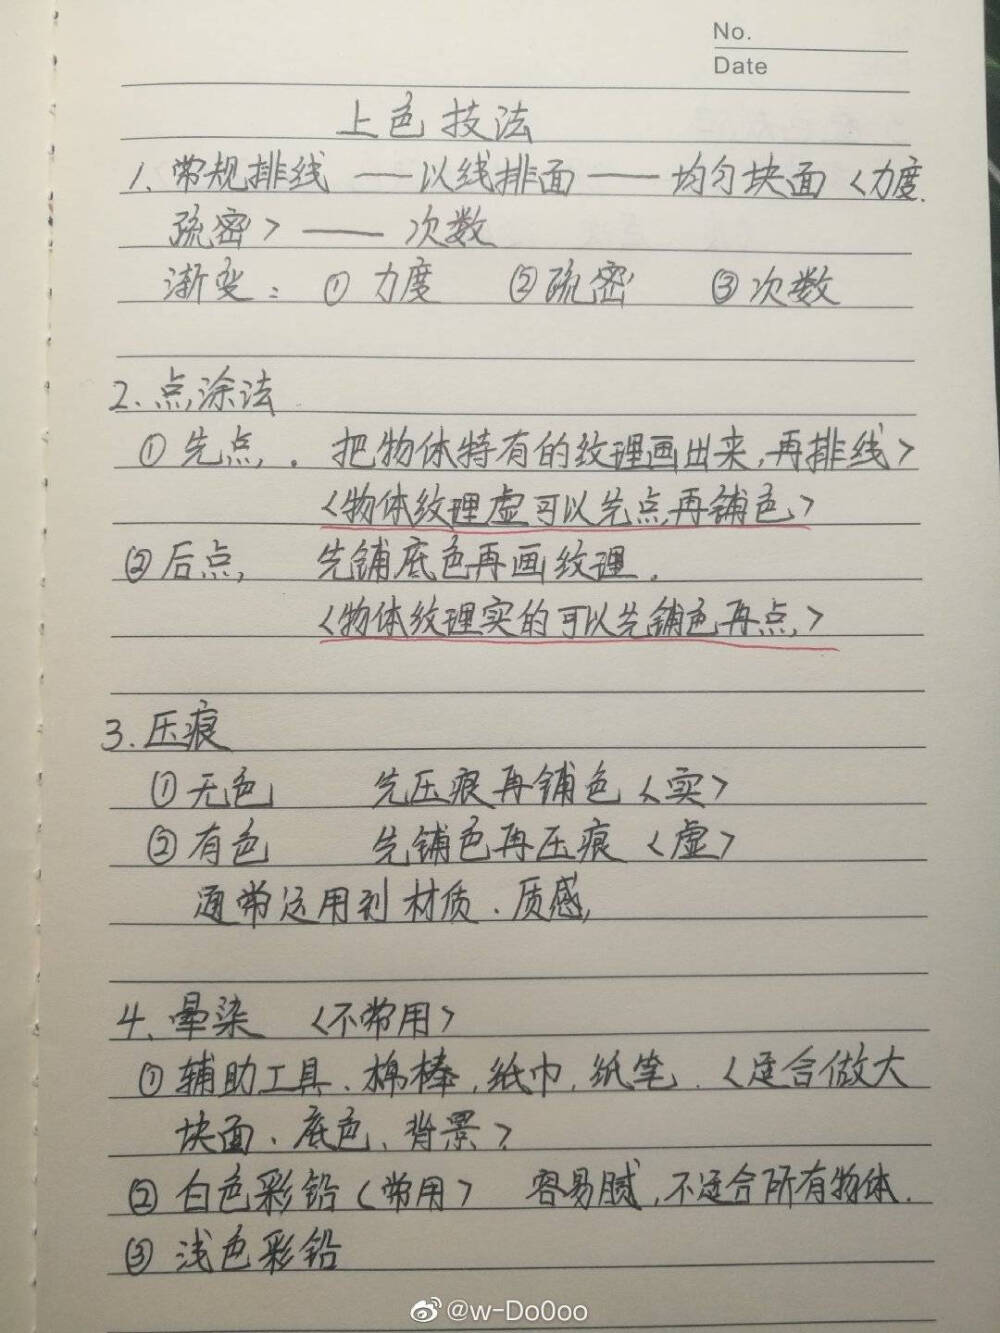 No.
Date
上色技法
1、常规排线 —— 以线排面 —— 均匀块面〈力度、
疏密〉—— 次数
渐变：① 力度 ② 疏密 ③ 次数
2、点涂法
① 先点，. 把物体特有的纹理画出来，再排线〉
〈物体纹理虚可以先点再铺色〉
② 后点， 先铺底色再画纹理．
〈物体纹理实的可以先铺色再点，〉
3．压痕
① 无色 先压痕再铺色〈实〉
② 有色 先铺色再压痕〈虚〉
通常运用到材质．质感，
4、晕染 〈不常用〉
① 辅助工具、棉棒，纸巾，纸笔．〈适合做大
块面、底色、背景〉
② 白色彩铅〈常用〉 容易腻，不适合所有物体．
③ 浅色彩铅
@w-Do0oo